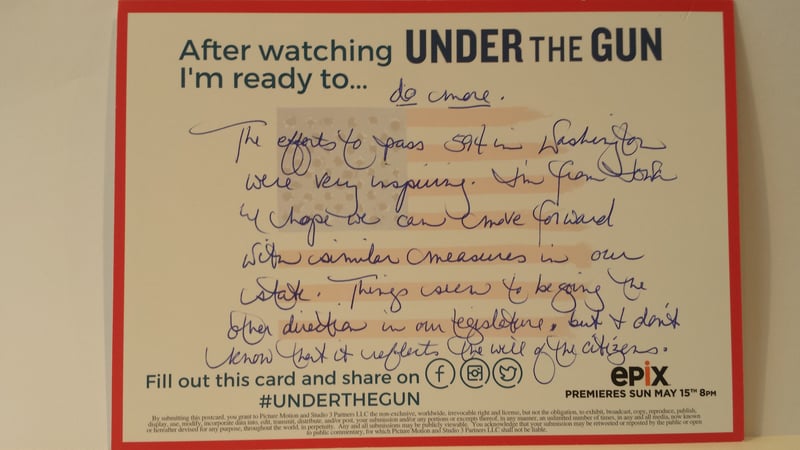 After watching UNDER THE GUN
I'm ready to...
do more.
The efforts to pass 594 in Washington
were very inspiring. I'm from
& hope we can move forward
with similar measures in our
state. Things seem to be going the
other direction in our legislature, but I don't
know that it reflects the will of the citizens.
Fill out this card and share on
#UNDERTHEGUN
epix
PREMIERES SUN MAY 15TH 8PM
By submitting this postcard, you grant to Picture Motion and Studio 3 Partners LLC the non-exclusive, worldwide, irrevocable right and license, but not the obligation, to exhibit, broadcast, copy, reproduce, publish,
display, use, modify, incorporate data into, edit, transmit, distribute, and/or post, your submission and/or any portions or excerpts thereof, in any manner, an unlimited number of times, in any and all media, now known
or hereafter devised for any purpose, throughout the world, in perpetuity. Any and all submissions may be publicly viewable. You acknowledge that your submission may be retweeted or reposted by the public or open
to public commentary, for which Picture Motion and Studio 3 Partners LLC shall not be liable.